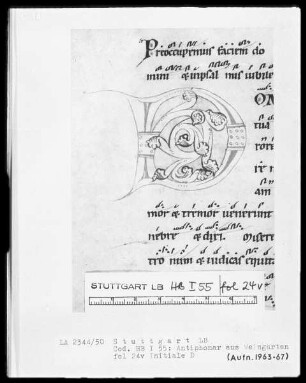 Preoccupemus faciem do
mini & inpsal mis iubile
OM
tua
am
mor & tremor uenerunt
nebre & diri.
tro num & iudicas equita
STUTTGART LB HB I 55 fol 24v
LA 2344/50 Stuttgart LB
Cod. HB I 55: Antiphonar aus Weingarten
fol 24v Initiale D
(Aufn. 1963-67)